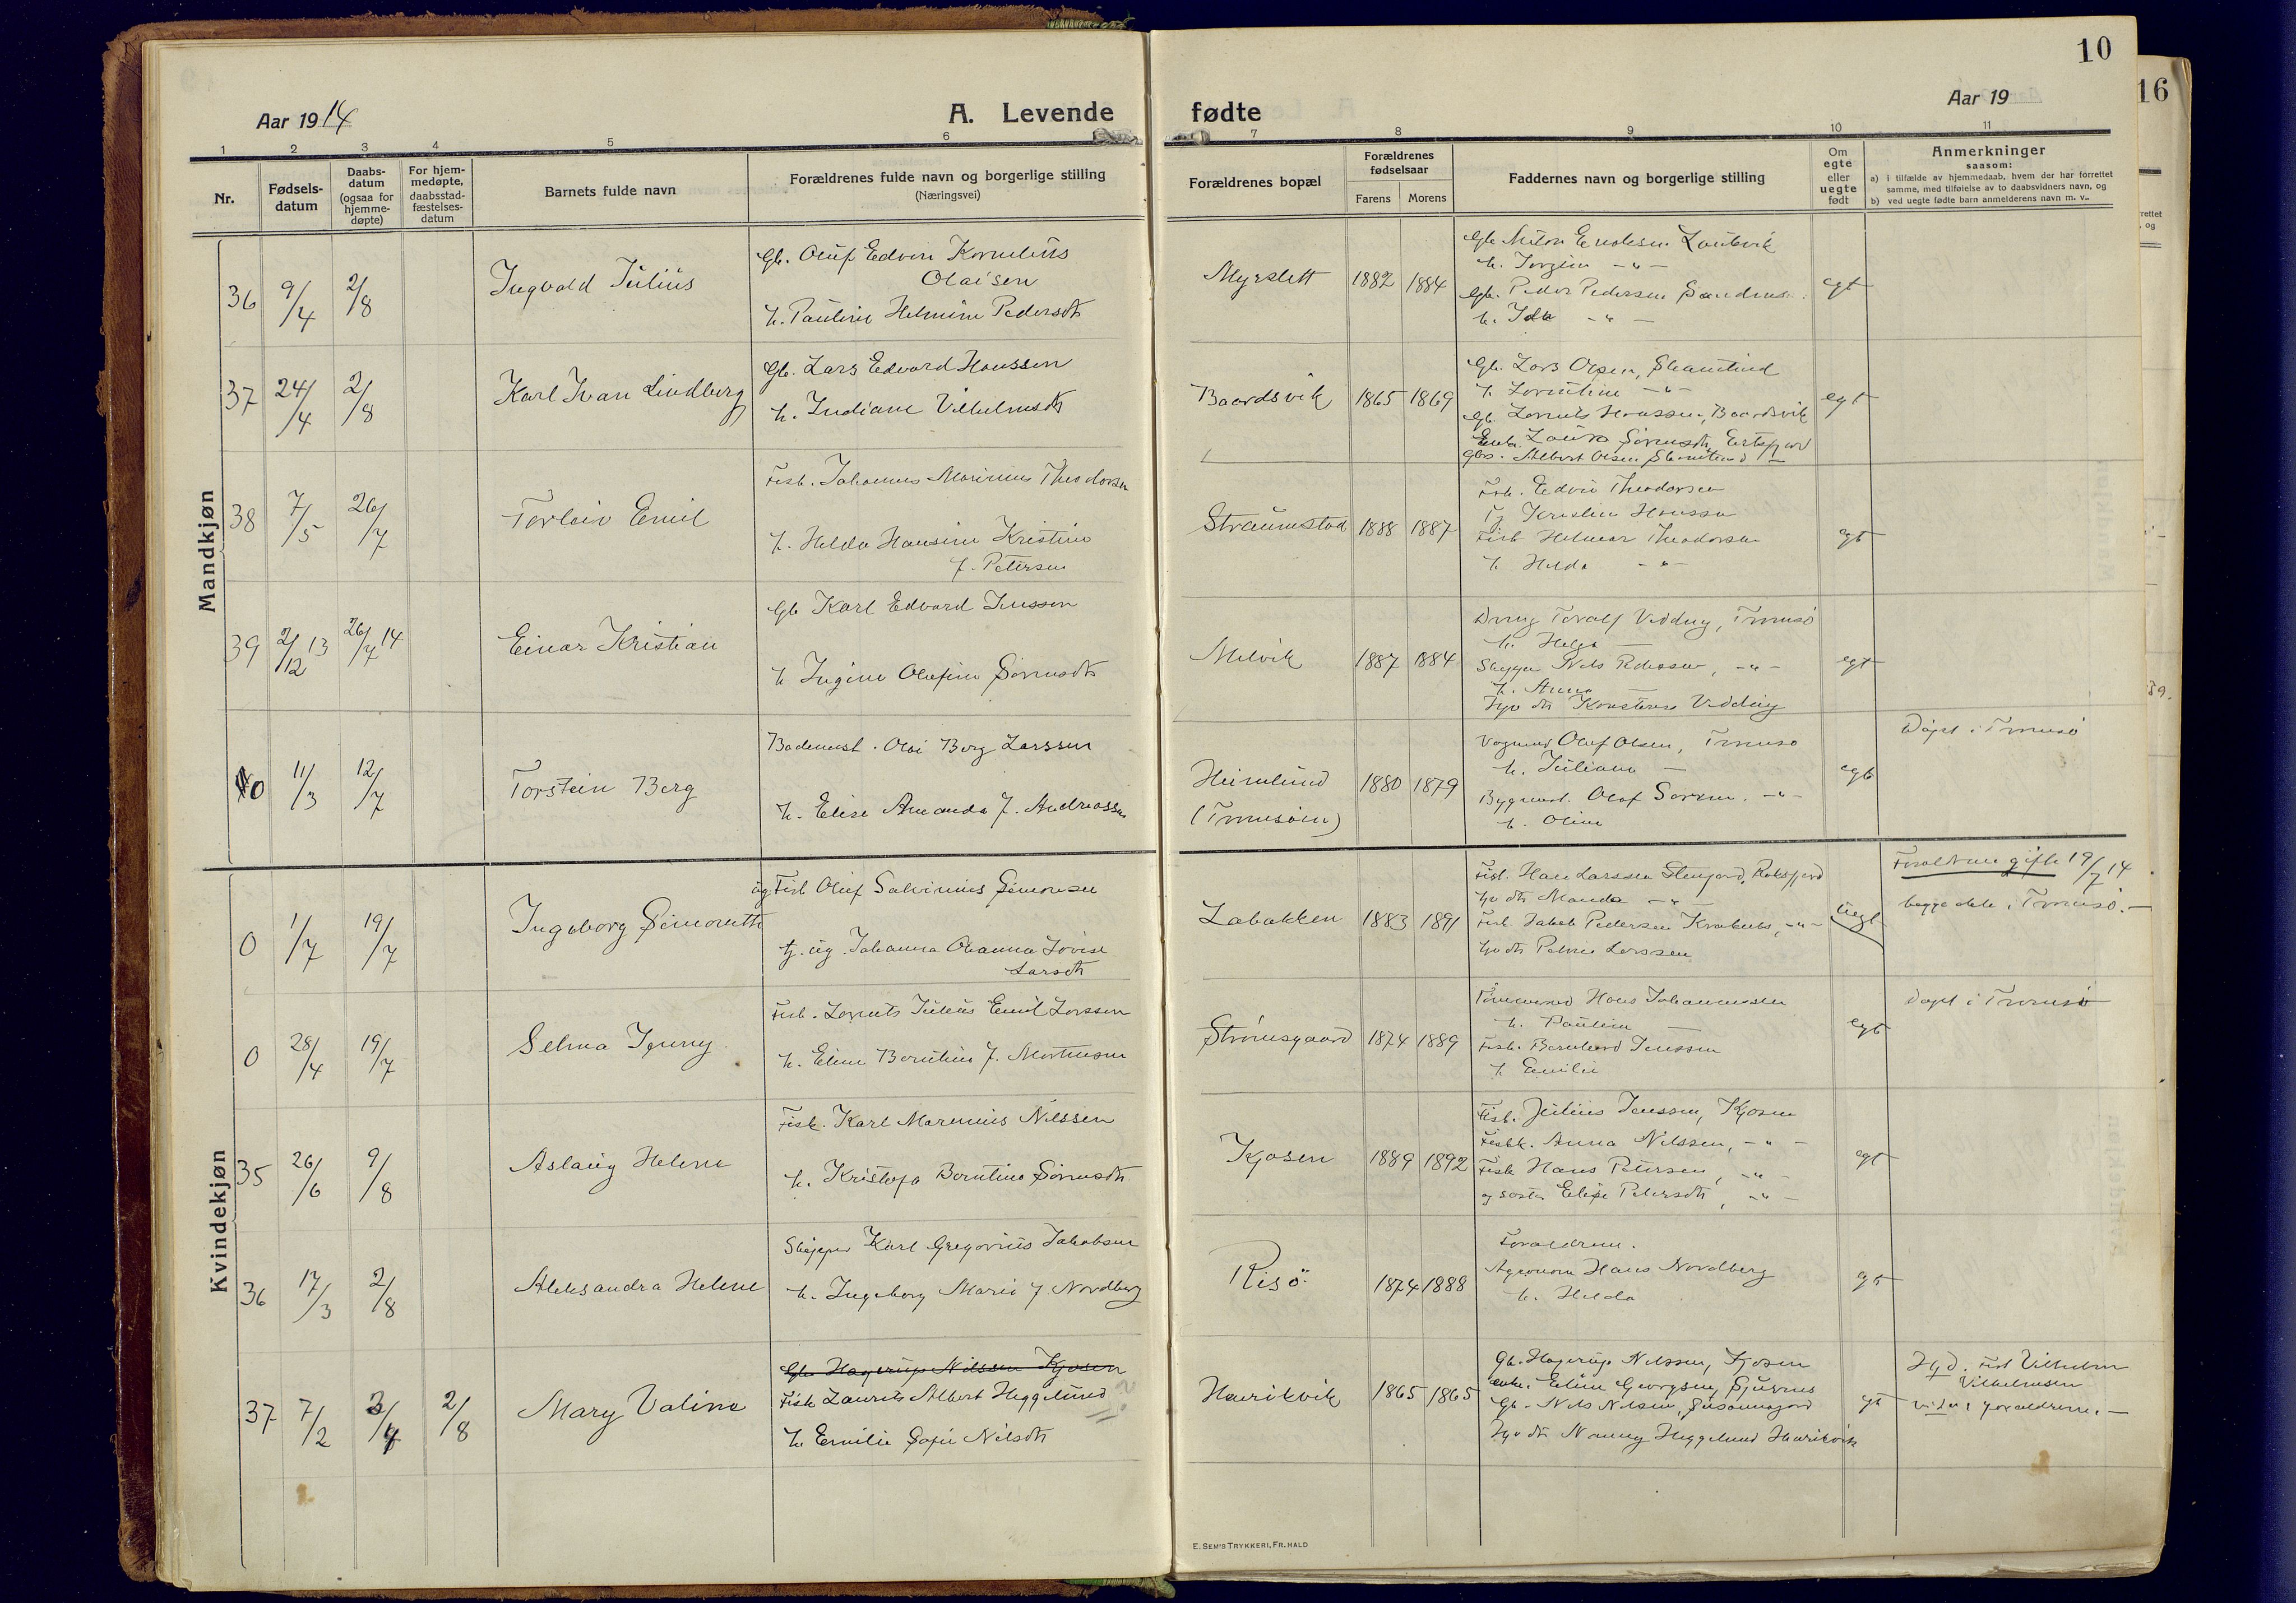 10
16
Aar 1914
A. Levende fødte
Aar 19
1 2 3 4 5 6 7 8 9 10 11
Nr.
Fødsels-
datum
Daabs-
datum
(ogsaa for
hjemme-
døpte)
For hjem-
medøpte,
daabsstad-
fæstelses-
datum
Barnets fulde navn
Forældrenes fulde navn og borgerlige stilling
(Næringsvei)
Forældrenes bopæl
Forældrenes
fødselsaar
Farens Morens
Faddernes navn og borgerlige stilling
Om
egte
eller
uegte
født
Anmerkninger
saasom:
a) i tilfælde av hjemmedaab, hvem der har forrettet
samme, med tilføielse av to daabsvidners navn, og
b) ved uegte fødte barn anmelderens navn m. v.
Mandkjøn
36 9/4 2/8 Ingvald Julius
Gb. Oluf Edvin Kornelius
Olaisen
h. Pauline Helmine Pedersdt
Myrslett 1882 1884
h. Jorgine -"-
Gb. Peder Pedersen
h. Ida -"-
egt
37 24/4 2/8 Karl Ivar Lindberg
Gb. Lars Edvard Hanssen
h. Indiane Vilhelmsdt
Baardsvik 1865 1869
Gb. Lars Olsen, Skamtind
h. Lorentine -"-
Gb. Lorents Hanssen, Baardsvik
Enke. Laura Sørensdt,
Gbs. Albert Olsen Skamtind
egt
38 7/5 26/7 Torleiv Emil
Fisk. Johannes Marinius Theodorsen
h. Helda Hansine Kristine
f. Petersen
Straumstad 1888 1887
Fisk. Edvin Theodorsen
Tj. Kristen Hanssen
Fisk Helmar Theodorsen
h Helda -"-
egt
39 2/12 13 26/7 14 Einar Kristian
Gb Karl Edvard Jenssen
h Ingine Olufine Sørensdt
Melvik 1887 1884
Toralf Vedding, Tromsø
h. Helga —
Skipper Nils Pedersen, -"-
h. Anna —
Konstanse Vedding
egt
40 11/3 12/7 Torstein Berg
Bademest. Olai Berg Larssen
h. Elise Amanda f. Andreassen
Heimlund
(Tromsøen)
1880 1879
Vognmd Oluf Olsen, Tromsø
h. Juliane —
Bygmest. Olaf -"-
h. Oline
egt
Døpt i Tromsø
Kvindekjøn
0 1/7 19/7 Ingeborg
ug Fisk Oluf Salvinius Simonsen
tj. ug. Johanna Lovise
Larsdt
Labakken 1883 1891
Fisk. Hans Larssen
-"-
Fisk. Jakob Pedersen -"-
Larssen
uegt
Forældrene gifte 19/7 14
begge dele i Tromsø. —
0 28/4 19/7 Selma Jenny
Fisk. Lorents Julius Emil Larssen
h. Eline Berntine f. Mortensen
Strømsgaard 1874 1889
Tømmermd Hans Johannessen
h. Pauline —
Fisk. Bernhard Jenssen
h. Emilie
egt
Døpt i Tromsø
35 26/6 9/8 Aslaug Helene
Fisk. Karl Marenius Nilssen
h. Kristofa Berntine Sørensdt
Kjosen 1889 1892
Fisk. Julius Jenssen, Kjosen
Anna Nilssen, -"-
Fisk Hans Petersen, -"-
og søster Elise Petersdt, -"-
egt
36 17/3 2/8 Aleksandra Helene
Skipper Karl Gregorius Jakobsen
h. Ingeborg Marie f. Nordberg
Risø 1874 1888
Forældrene.
Agronom Hans Nordberg
h. Helda
egt
37 7/2 3/4 2/8 Mary Valine
Gb. Hagerup Nilssen Kjosen
Fisk Laurits Albert Heggelund
h. Emilie Sofie Nilsdt
Haarikvik 1865 1865
Gb. Hagerup Nilssen, Kjosen
Enke. Eline Georgsen,
Gb. Nils Nilsen,
Nanny Heggelund
egt
Hjd. Fisk Vilhelm
Vilhelmsen
Vidner forældrene. —
E. SEM'S TRYKKERI, FR.HALD